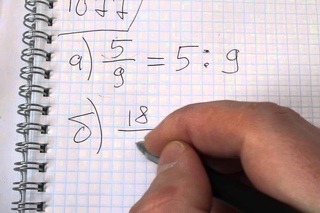 1077
а) 5/9 = 5 : 9
б) 18/